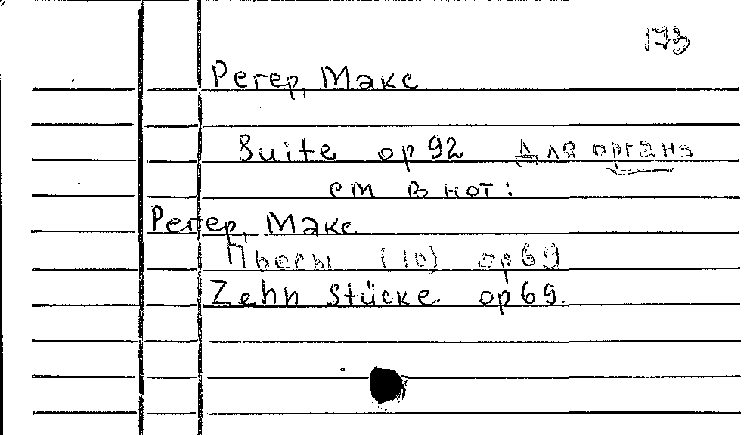 173
Регер, Макс
Suite op 92 для органа
см в нот:
Регер, Макс
Пьесы (10) op 69
Zehn Stücke op 69.